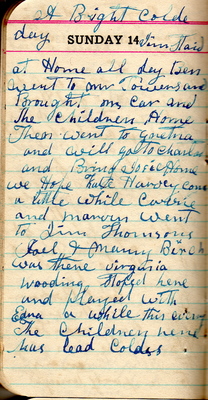 A Bright Colde
day
SUNDAY 14 Jim Staid
at Home all day Ben
went to mr Towers and
Brought our car and
The Children Home
Then went to
and will go to Charlot
and Bring Home
we Hope that Harvey come
a little while Carrie
and marvin went
to Jim Thomsons
Joel & Manny Birch
was there virginia
wooding Stoped here
and played with
Edna a while this evning
The Children here
has Bead Coldes